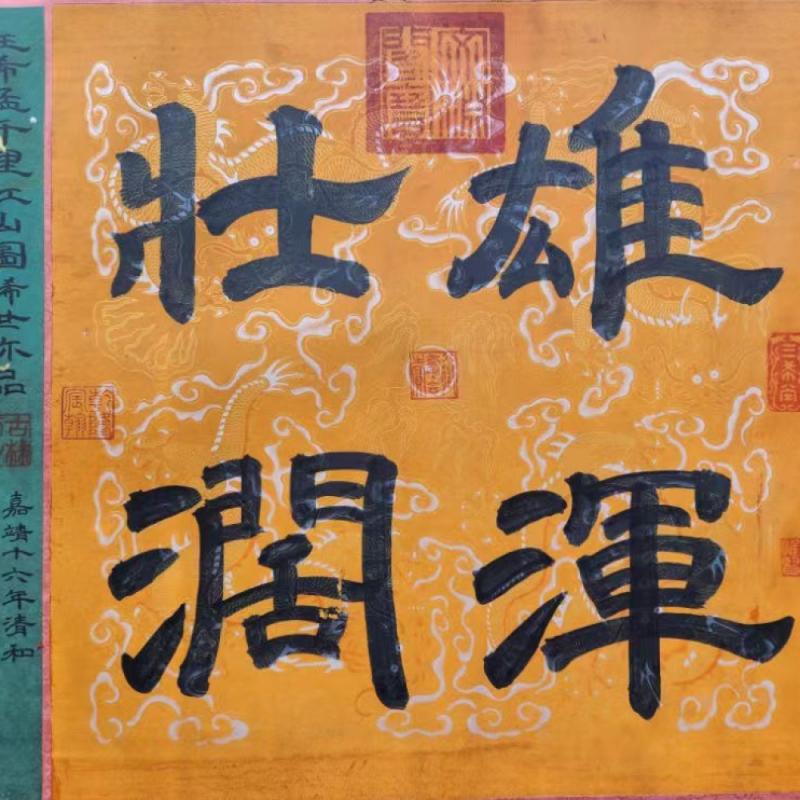 雄渾
壯濶
乾隆宸翰
王希孟千里江山圖希世品
嘉靖十六年清和